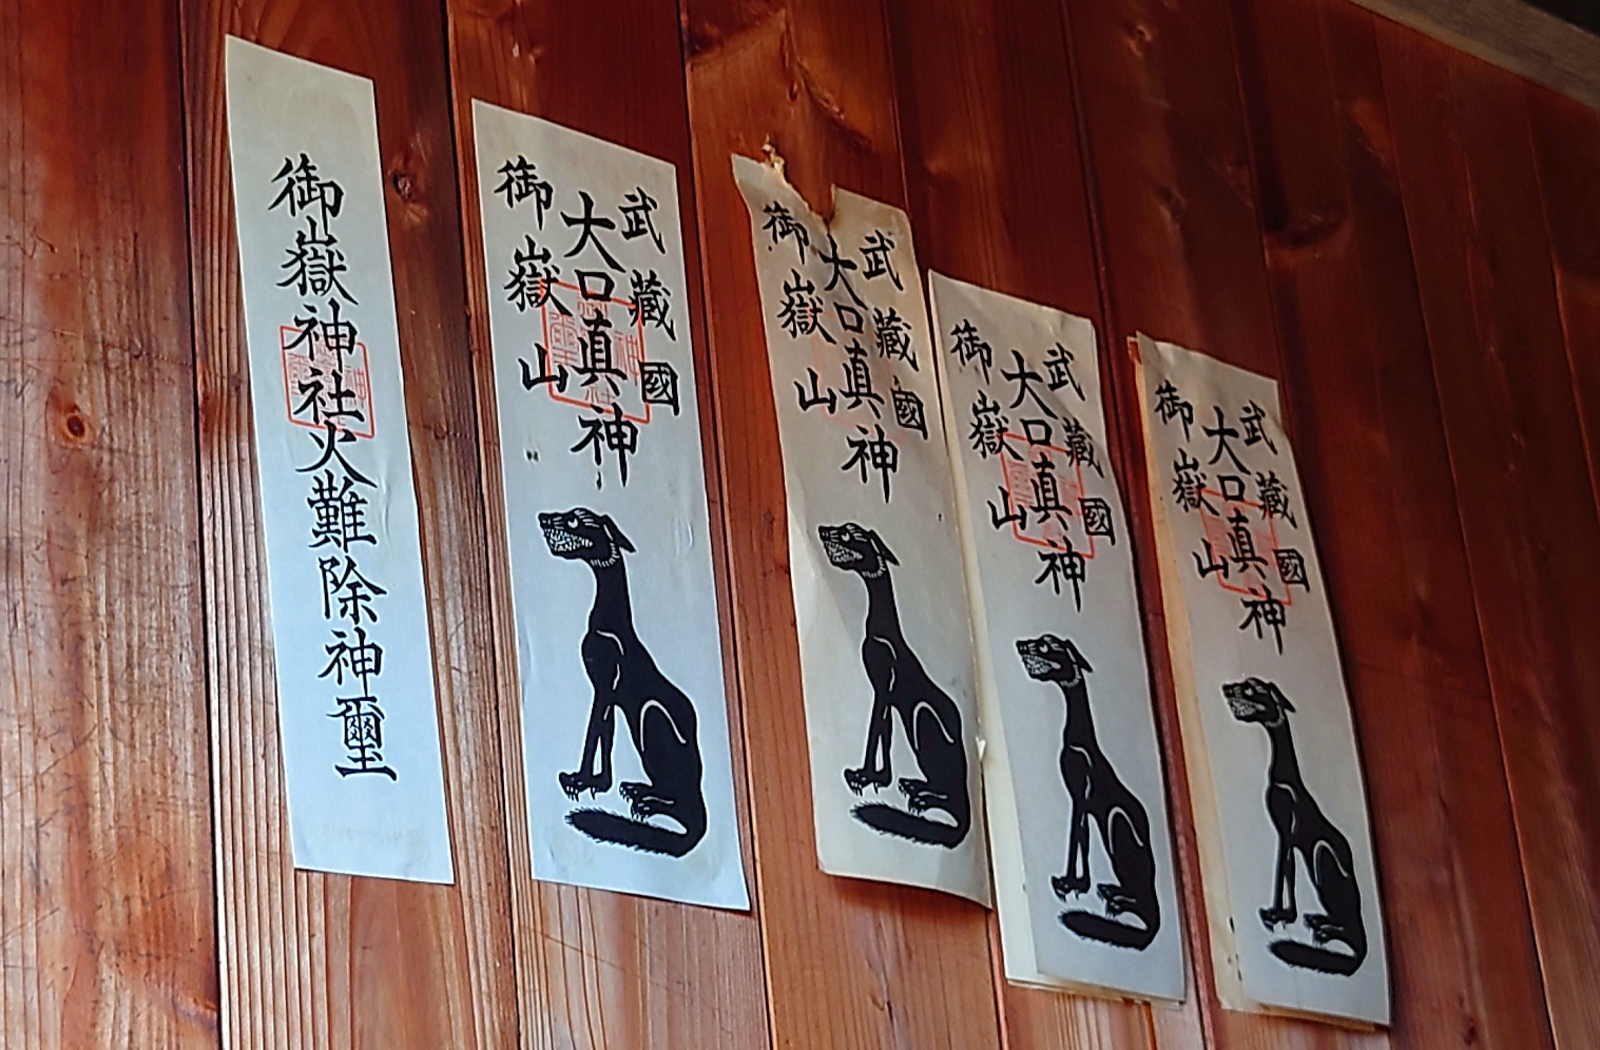 御嶽神社火難除神璽
武藏國
大口真神
御嶽山
武藏國
大口真神
御嶽山
武藏國
大口真神
御嶽山
武藏國
大口真神
御嶽山